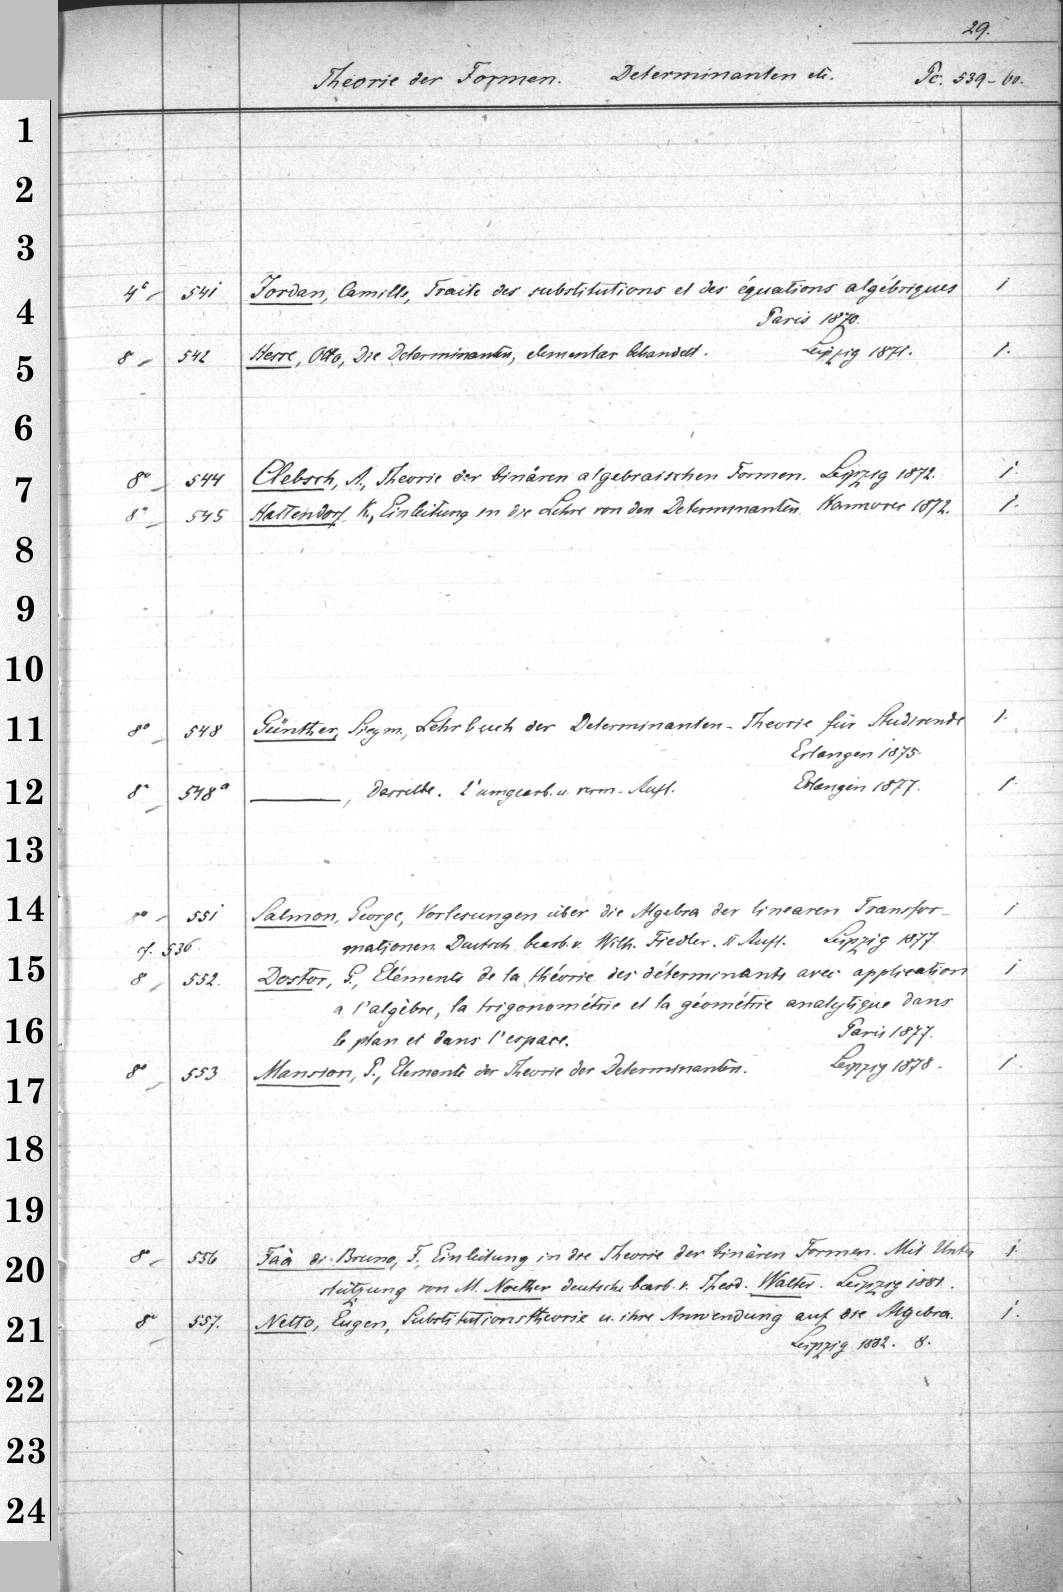 29.
Theorie der Formen. Determinanten etc. Pc. 539-60.
1
2
3
4° 541 Jordan, Camille, Traité des substitutions et des équations algébriques 1
4
Paris 1870.
8 542 Hesse, Otto, Die Determinanten, elementar behandelt. Leipzig 1871. 1.
5
6
8° 544 Clebsch, A., Theorie der binären algebraischen Formen. Leipzig 1872. 1.
7
8° 545 Hattendorf, K., Einleitung in die Lehre von den Determinanten. Hannover 1872. 1.
8
9
10
8° 548 Günther, Siegm., Lehrbuch der Determinanten-Theorie für Studirende 1.
11
Erlangen 1875.
8° 548a ———, Dasselbe. 2' umgearb. u. verm. Aufl. Erlangen 1877. 1.
12
13
8° 551 Salmon, George, Vorlesungen über die Algebra der linearen Transfor- 1
14
cf. 536. mationen. Deutsch bearb. v. Wilh. Fiedler. II Aufl. Leipzig 1877.
15
8 552. Dostor, G., Éléments de la théorie des déterminants avec application 1
a l'algèbre, la trigonométrie et la géométrie analytique dans
16
le plan et dans l'espace. Paris 1877.
8° 553 Mansion, P., Elemente der Theorie der Determinanten. Leipzig 1878. 1.
17
18
19
8° 556 Faà di Bruno, F., Einleitung in die Theorie der binären Formen. Mit Unter 1.
20
stützung von M. Noether deutsch bearb. v. Theod. Walter. Leipzig 1881.
8° 557. Netto, Eugen, Substitutionstheorie u. ihre Anwendung auf die Algebra. 1.
21
Leipzig 1882. 8.
22
23
24